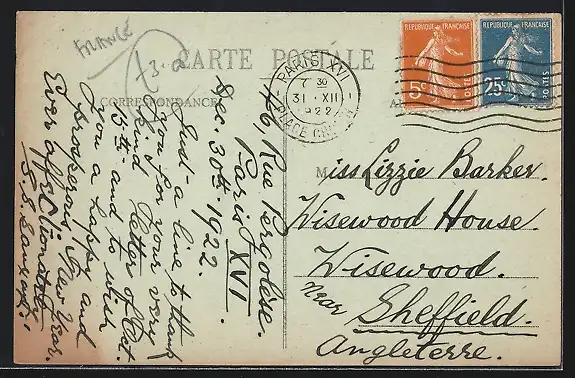 FRANCE
73.2
CARTE POSTALE
CORRESPONDANCE
46, Rue Pergolèse.
Paris XVI
Dec. 30th. 1922.
Just a line to thank
you for your very
kind letter of Oct.
15th and to wish
you a happy and
prosperous New Year.
Ever affectionately
PARIS XVI
7 30
31 XII
1922
PLACE
RÉPUBLIQUE FRANÇAISE
5c
RÉPUBLIQUE FRANÇAISE
25c
POSTES
Miss Lizzie Barker.
Wisewood House.
Wisewood.
near Sheffield.
Angleterre.